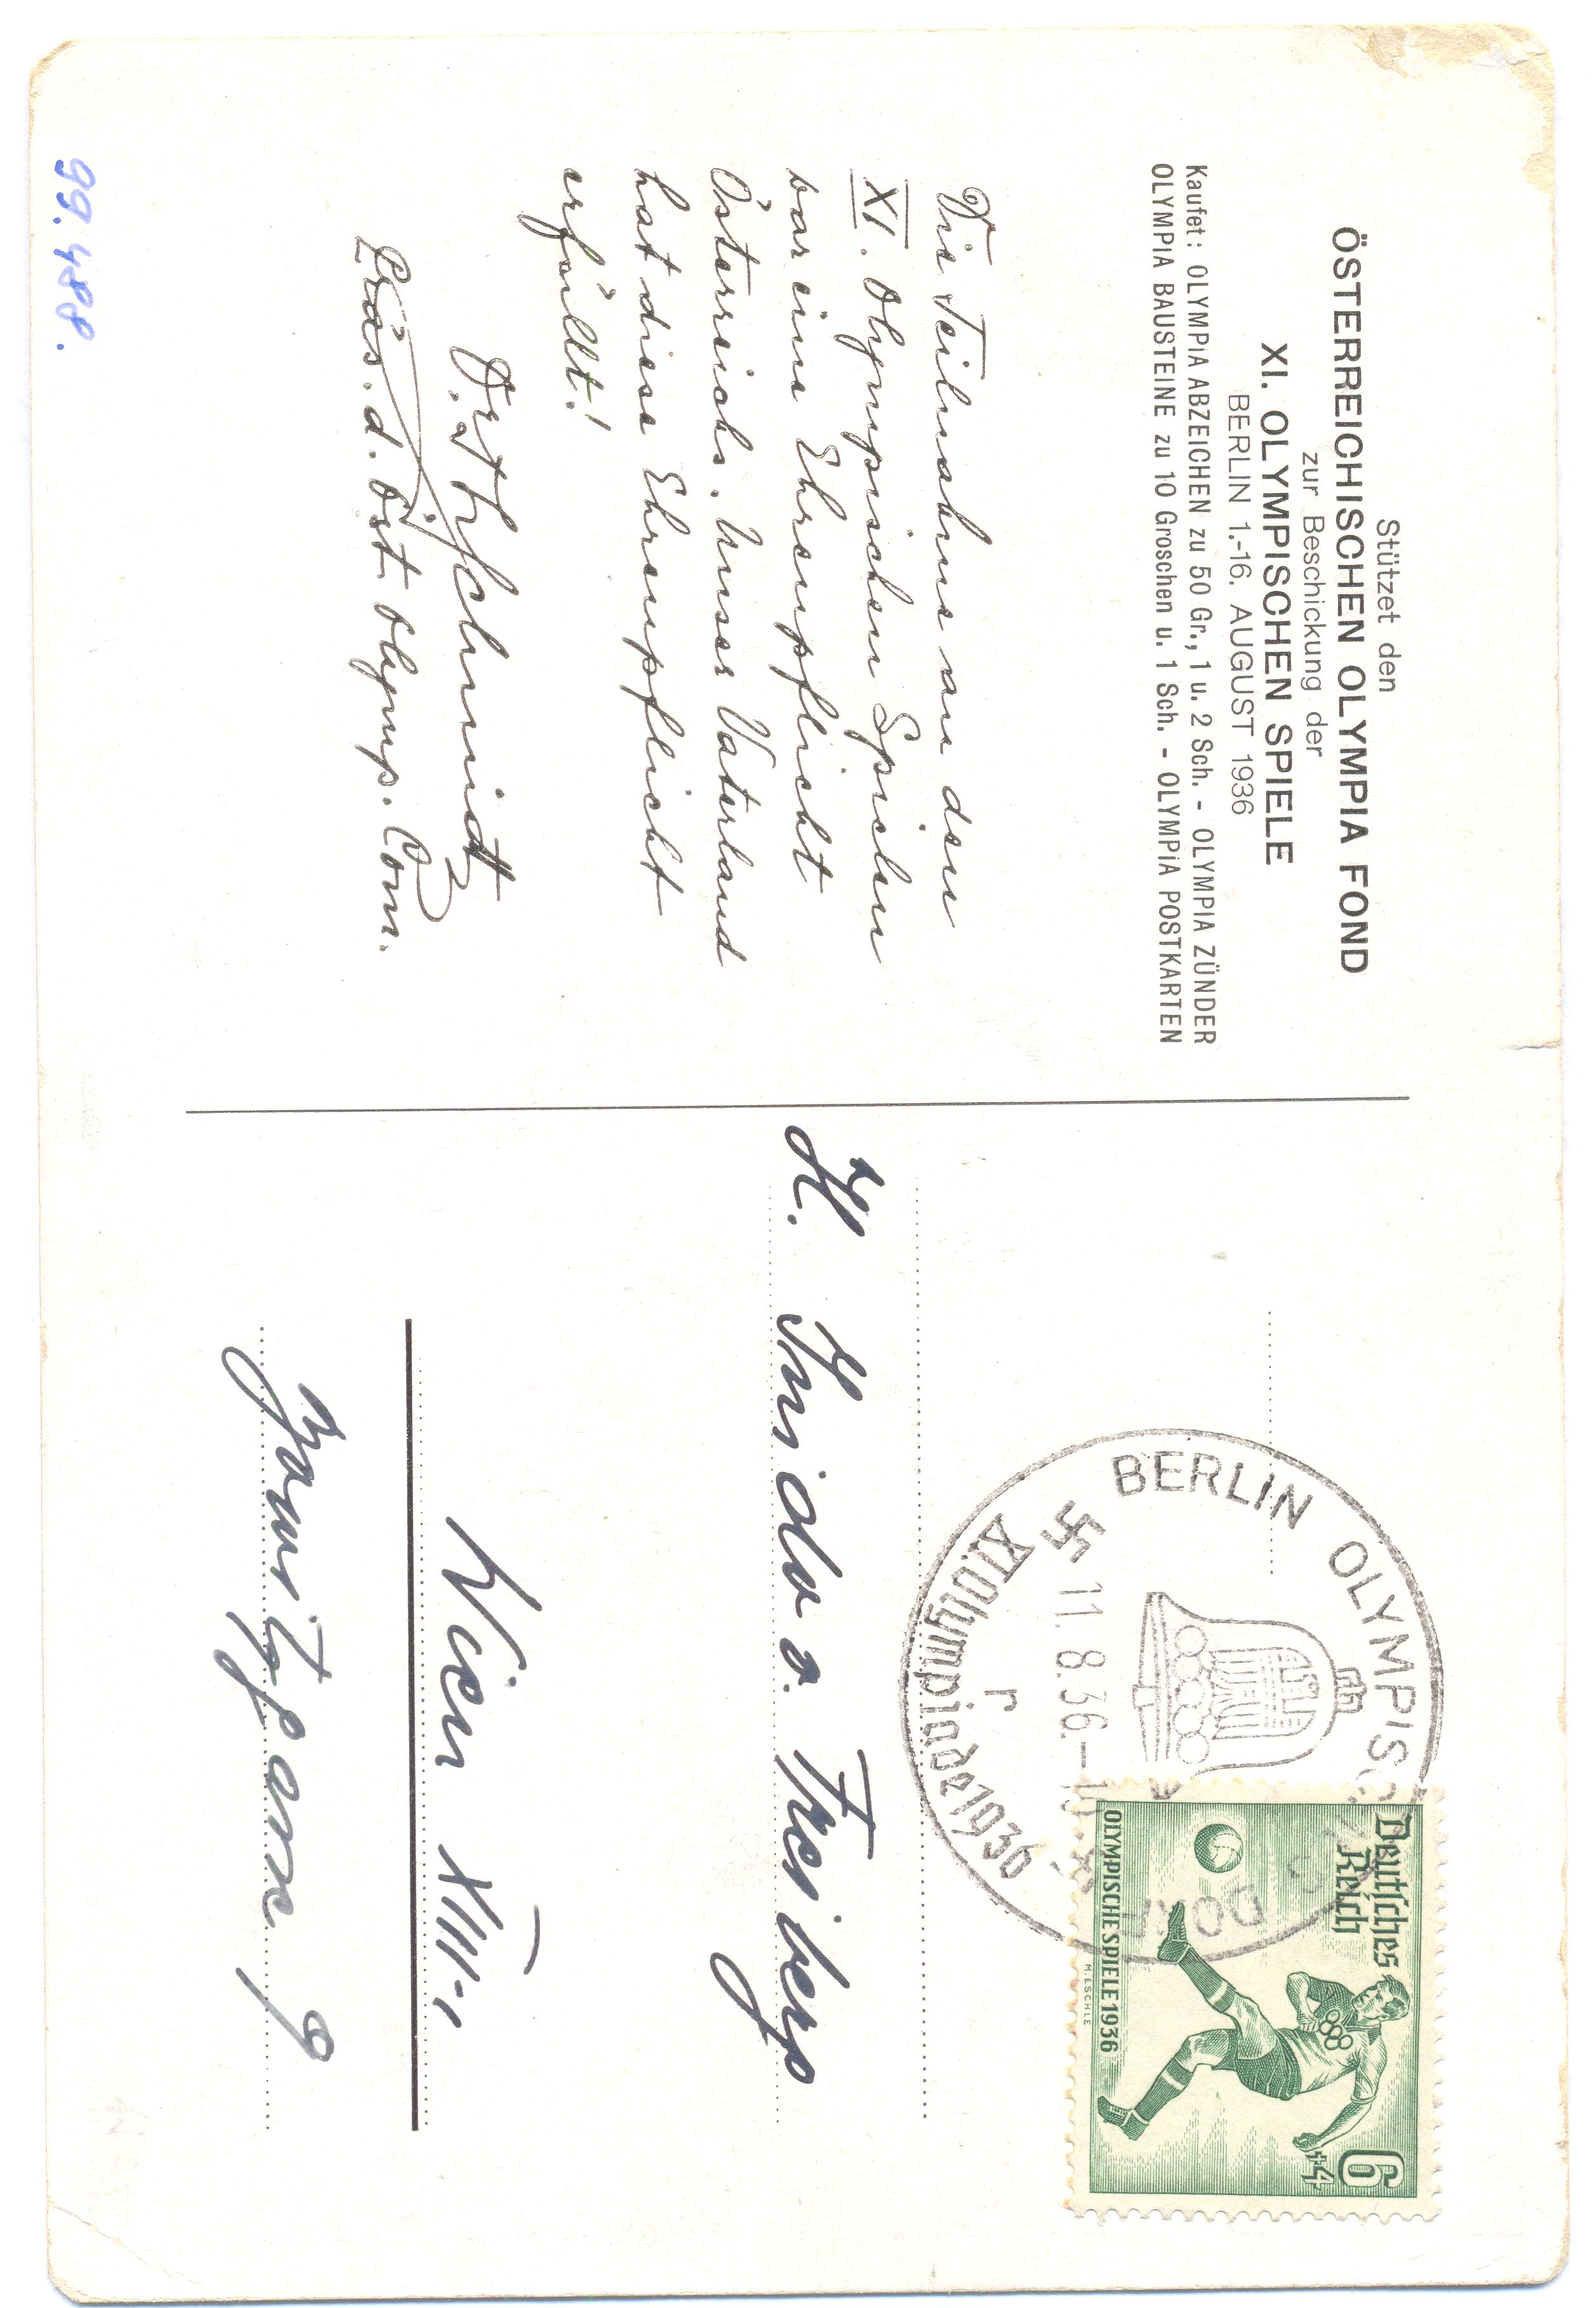 Stützet den
ÖSTERREICHISCHEN OLYMPIA FOND
zur Beschickung der
XI. OLYMPISCHEN SPIELE
BERLIN 1.-16. AUGUST 1936
Kaufet: OLYMPIA ABZEICHEN zu 50 Gr., 1 u. 2 Sch. - OLYMPIA ZÜNDER
OLYMPIA BAUSTEINE zu 10 Groschen u. 1 Sch. - OLYMPIA POSTKARTEN
Die Teilnahme an den
XI. Olympischen Spielen
war eine Ehrenpflicht
Österreichs. Unser Vaterland
hat diese Ehrenpflicht
erfüllt!
Dr. Th. Schmidt
Präs. d. Öst. Olymp. Com.
99.488.
BERLIN OLYMPISCHES DORF
11.8.36.-
r
XI. Olympiade 1936
Deutsches
Reich
6
+4
OLYMPISCHE SPIELE 1936
M. ESCHLE
H.
Wien XIII-1
9